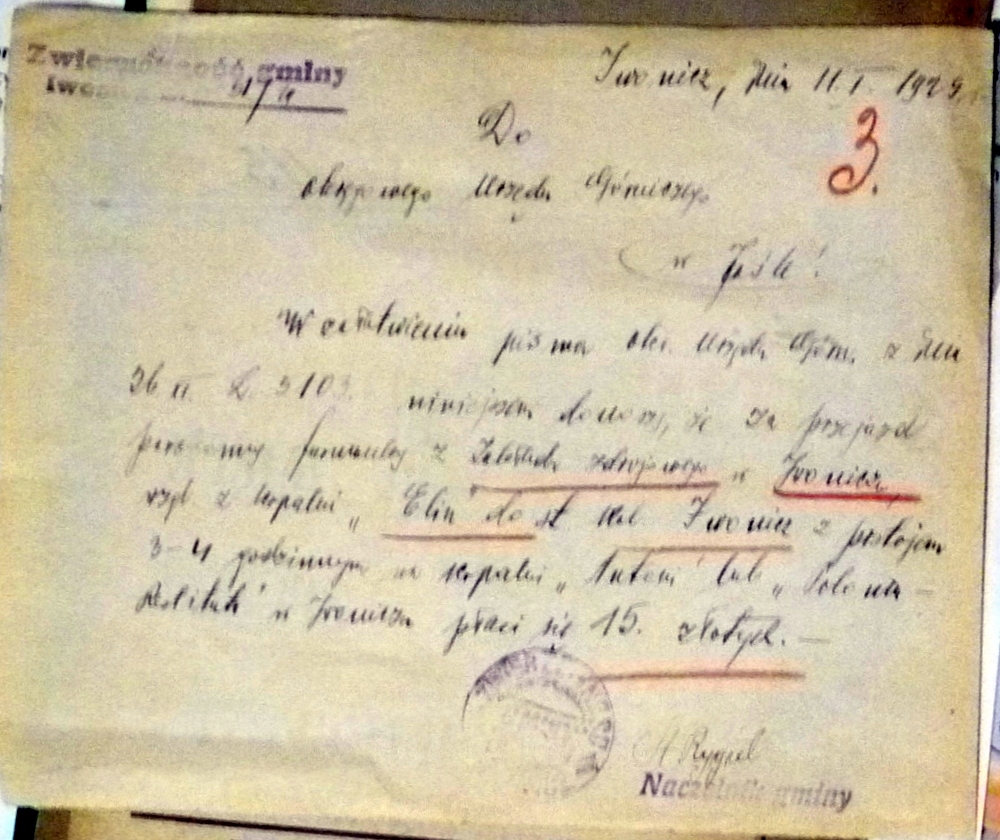 Zwierzchność gminy
Iwonicz
Iwonicz, dnia 11. I. 1929
3.
Do
okręgowego Urzędu Górniczego
w Jaśle!
W załatwieniu pisma okr. Urzędu Górn. z dnia
26 L. 5103. niniejszem donoszę, że za przejazd
furmanką z Zakładu zdrojowego w Iwoniczu,
wzgl z kopalni „Elin" do st kol Iwonicz z postojem
3-4 godzinnym na kopalni „Antoni" lub „Polonia-
w Iwoniczu płaci się 15. złotych. —
A Rygiel
Naczelnik gminy